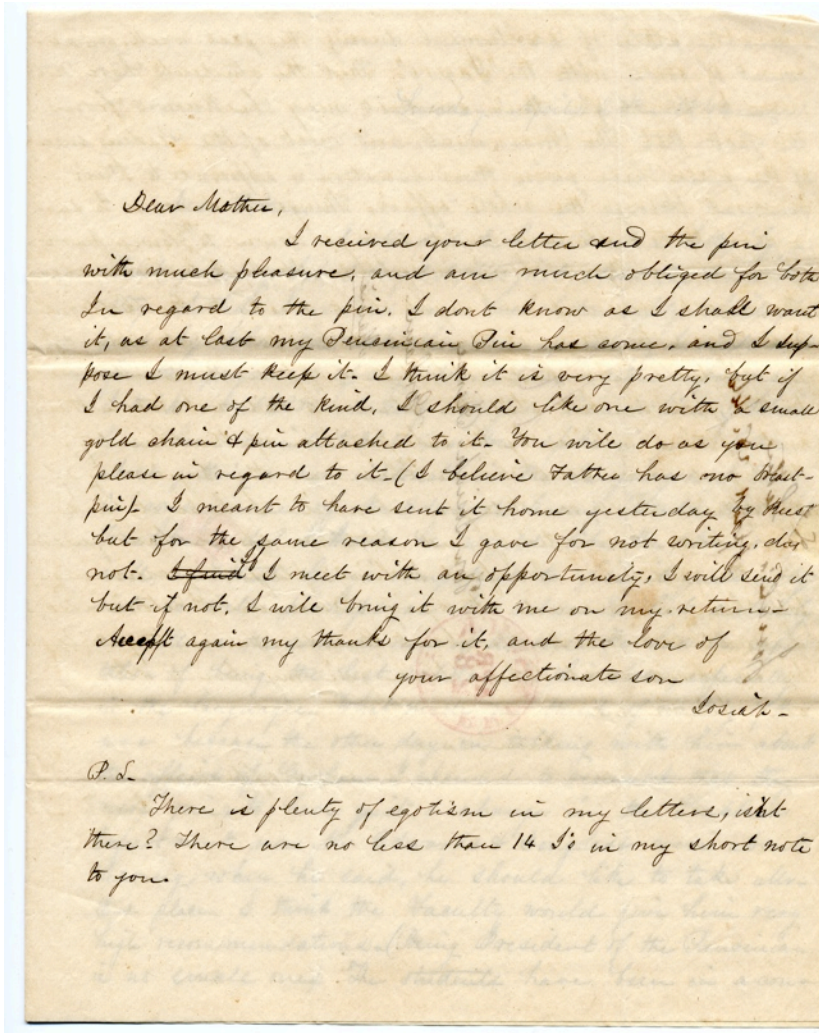 Dear Mother,
I received your letter and the pin
with much pleasure, and am much obliged for both
In regard to the pin. I dont know as I shall want
it, as at last my Peucinian Pin has come, and I sup-
pose I must keep it. I think it is very pretty, but if
I had one of the kind, I should like one with a small
gold chain & pin attached to it. You will do as you
please in regard to it. (I believe Father has no breast-
pin). I meant to have sent it home yesterday by
but for the same reason I gave for not writing, did
not. I find If I meet with an opportunity, I will send it
but if not, I will bring it with me on my return.
Accept again my thanks for it, and the love of
your affectionate son
Josiah.
P.S.
There is plenty of egotism in my letters, isn't
there? There are no less than 14 I's in my short note
to you.